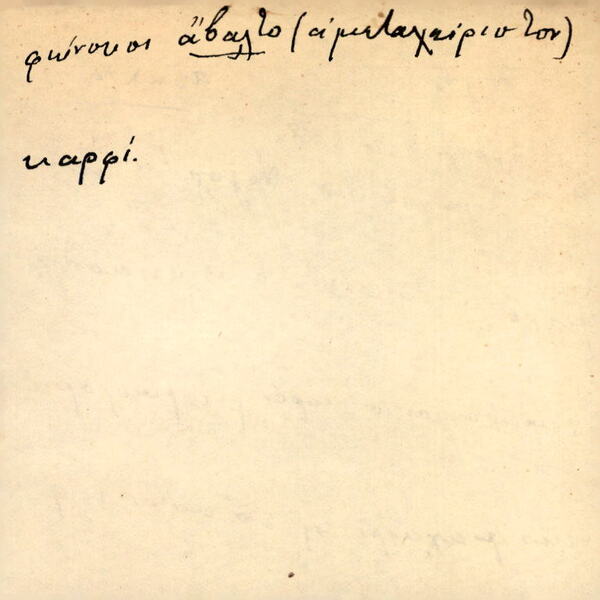 φώνουσι ἄβαλτο (ἀμεταχείριστον)
καρφί.